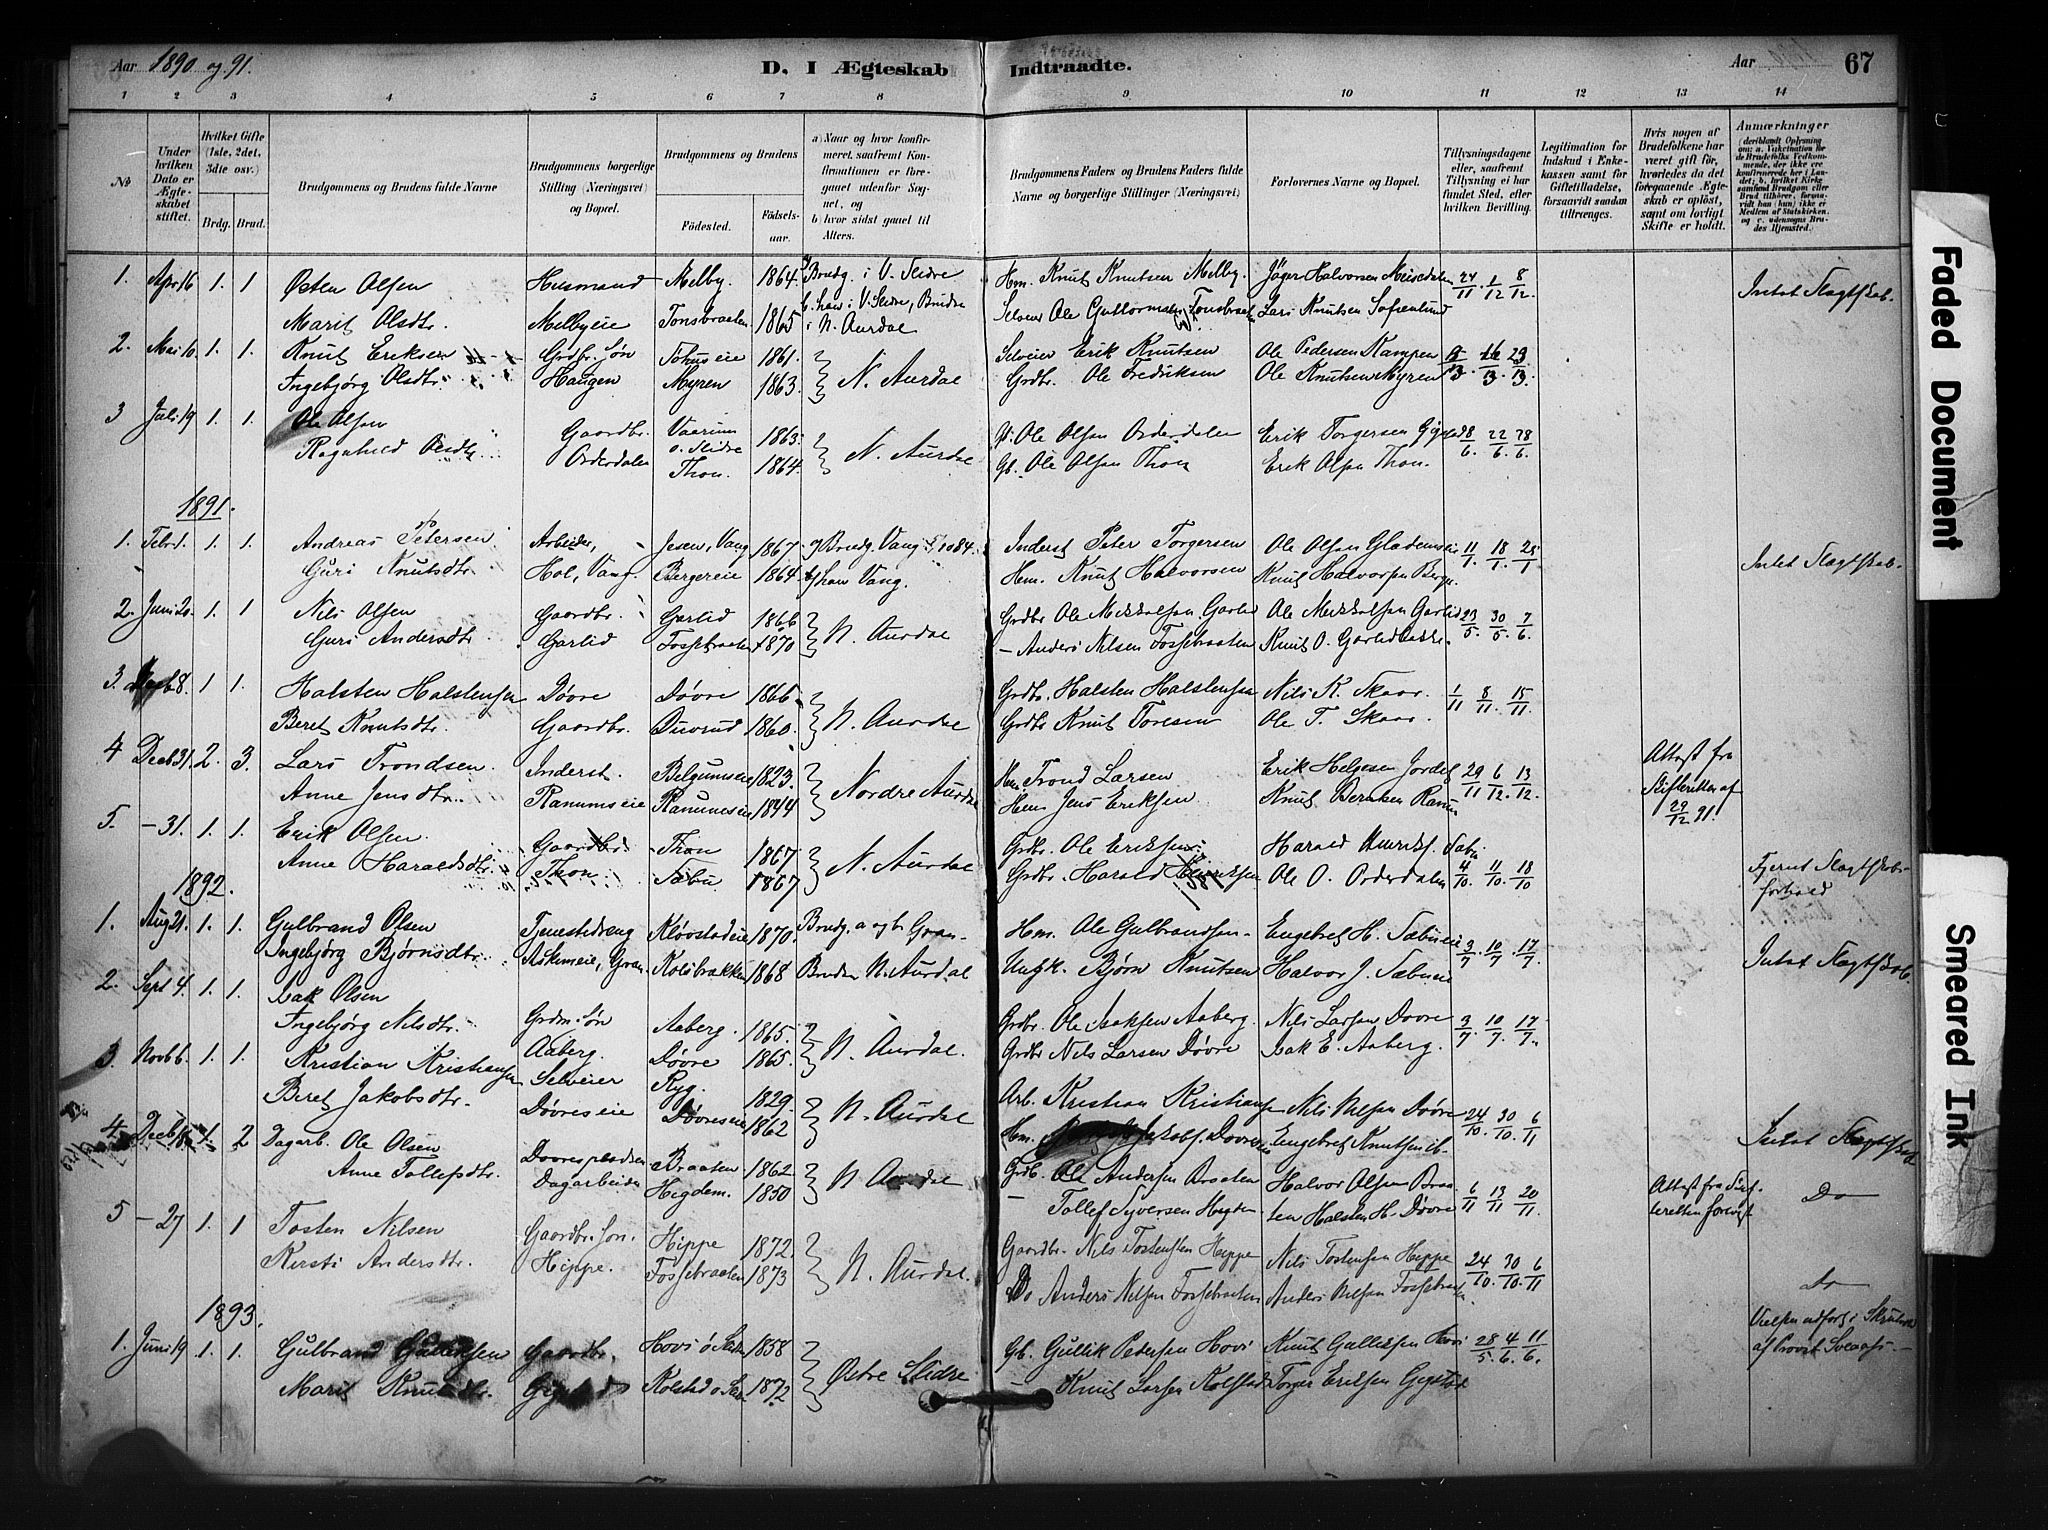 Aar 1890 og 91.
D. I Ægteskab Indtraadte.
Aar
67
1 2 3 4 5 6 7 8 9 10 11 12 13 14
No
Under hvilken Dato er Ægteskabet stiftet.
Hvilket Gifte (1ste, 2det, 3die osv.)
Brdg. Brud.
Brudgommens og Brudens fulde Navne
Brudgommens borgerlige Stilling (Næringsvei) og Bopæl.
Brudgommens og Brudens
Fødested. Fødselsaar.
a) Naar og hvor konfirmeret, saafremt Konfirmationen er foregaaet udenfor Sognet, og
b) hvor sidst gaaet til Alters.
Brudgommens Faders og Brudens Faders fulde Navne og borgerlige Stillinger (Næringsvei)
Forlovernes Navne og Bopæl.
Tillysningsdagene eller, saafremt Tillysning ei har fundet Sted, efter hvilken Bevilling.
Legitimation for Indskud i Enkekassen samt for Giftetilladelse, forsaavidt saadan tiltrænges.
Hvis nogen af Brudefolkene har været gift før, hvorledes da det foregaaende Ægteskab er opløst, samt om lovligt Skifte er holdt.
Anmærkninger (deriblandt Oplysning om: a. Vakcination for de Brudefolks Vedkommende, der ikke ere konfirmerede her i Landet; b. hvilket Kirkesamfund Brudgom eller Brud tilhører, forsaavidt han (hun) ikke er Medlem af Statskirken og c. udensogns Brudes Hjemsted.
1. Apr 16 1. 1 Østen Olsen Husmand Melby. 1864. a) Brudg. i V. Slidre Hm. Knut Knutsen Melby. Jæger Halvorsen 24/11. 1/12 8/12. Intet Slægtskab.
Marit Olsdtr. Melbyeie Tonsbraaten 1865 b. han i V. Slidre, Bruden i N. Aurdal Selveier Ole Guttormsen Tonsbraaten Lars Knutsen
2. Mai 10. 1. 1. Knut Eriksen Grdbr. Søn 1861. N. Aurdal Selveier Erik Knutsen Ole Pedersen Kampen 16/3. 23/3.
Ingebjørg Olsdtr. Haugen Myren 1863. Grdbr. Ole Fredriksen Ole Knutsen Myren
3 Juli 19 1. 1. Ole Olsen Gaardbr. Vaarum ø. Slidre 1863. N. Aurdal Gb. Ole Olsen Orderdalen Erik Torgersen 8/6. 22/6. 28/6.
Ragnhild Olsdtr Orderdalen Thon. 1864. Gb. Ole Olsen Thon Erik Olsen Thon.
1891.
1. Febr 1. 1. 1. Andreas Petersen Arbeider, Jesen, Vang 1867. a) Brudg. Vang 1884. Inderst Peter Torgersen Ole Olsen 11/1. 18/1. 25/1 Intet Slægtskab.
Guri Knutsdtr. Hol, Vang. Bergereie 1864. b) han Vang. Hm. Knut Halvorsen Knut Halvorsen Berge.
2. Juni 20. 1. 1 Nils Olsen Gaardbr. Garlid 1866 N. Aurdal Grdbr. Ole Mikkelsen Garlid Ole Mikkelsen Garlid 23/5. 30/5. 7/6
Guri Andersdtr. Garlid Fossebraaten 1870 – Anders Nilsen Fossebraaten Knut O. Garlidbakke.
3. 8. 1 1. Halsten Halstensen Døvre Døvre 1866 N. Aurdal Grdbr. Halsten Halstensen Nils K. Skaar. 1/11 8/11. 15/11.
Beret Knutsdtr. Gaardbr. 1860. Grdbr Knut Toresen Ole T. Skaar.
4 Decb 31. 2. 3. Lars Trondsen. Inderst. Belgumseie 1823. Nordre Aurdal Hm. Trond Larsen Erik Helgesen Jordet 29/11 6/12. 13/12. Attest fra Skifteretten af 29/12 91.
Anne Jensdtr. Ranumseie Ranumseie 1844 Hm. Jens Eriksen Knut Ranum
5. – 31. 1. 1. Erik Olsen. Gaardbr. Thon 1867. N. Aurdal Grdbr. Ole Eriksen. Harald Henriks. Sæbu 4/10. 11/10. 18/10 Fjernt Slægtskabsforhold
Anne Haraldsdtr. Thon. Sæbu 1867 Grdbr. Harald Henriksen Ole O. Orderdalen
1892.
1. Aug 21. 1. 1. Gulbrand Olsen Tjenestedreng Kløvstadeie 1870. Brudg. a og b. Gran. Hm. Ole Gulbrandsen Engebret H. Sæbueie 3/7. 10/7. 17/7. Intet Slægtskab.
Ingebjørg Bjørnsdtr. Askimeie, Gran 1868 Bruden N. Aurdal Ungk. Bjørn Knutsen Halvor J. Sæbueie
2. Sept 4. 1. 1. Isak Olsen Grdm. Søn Aaberg. 1865. N. Aurdal. Grdbr. Ole Isaksen Aaberg. Nils Larsen Døvre 3/7 10/7. 17/7.
Ingebjørg Nilsdtr. Aaberg. Døvre 1865. Grdbr Nils Larsen Døvre Isak E. Aaberg.
3. Novb 6. 1. 1. Kristian Kristiansen Selveier Ryg. 1829. N. Aurdal Arb. Kristian Kristiansen Nils Nilsen Døvre 24/10. 30/10. 6/11 Intet Slægtskab
Beret Jakobsdtr. Døvreseie Døvreseie 1862 Hm. Jakobs. Døvreseie Engebret Knutsen ib.
4. Decb 1. 2 Dagarb. Ole Olsen Døvrespladsen Braaten 1862 N. Aurdal Grdb. Ole Andersen Braaten Halvor Olsen Braaten 6/11 13/11 20/11. Attest fra Skifteretten forevist Do
Anne Tollefsdtr. Dagarbeider Hegdem. 1850 – Tollef Syversen Halsten H. Døvre
5 – 27 1. 1 Tosten Nilsen Gaardbr. Søn. Hippe 1872. N. Aurdal. Gaardbr. Nils Tostensen Hippe Nils Tostensen Hippe 24/10. 30/10. 6/11
Kirsti Andersdtr. Hippe. Fossebraaten 1873 Do Anders Nilsen Fossebraaten Anders Nilsen Fossebraaten. do
1893.
1. Juni 19 1. 1. Gulbrand Gulliksen Gaardbr. Hovi Ø. Slidre 1858 Østre Slidre Gb. Gullik Pedersen Hovi Knut Gulliksen Hovi 28/5. 4/6. 11/6. Vielsen udført i Skrutvold af Provst
Marit Knutsdtr. Kolstad ø. Slidre 1872 – Knut Larsen Kolstad Torger Eriksen
Faded Document
Smeared Ink